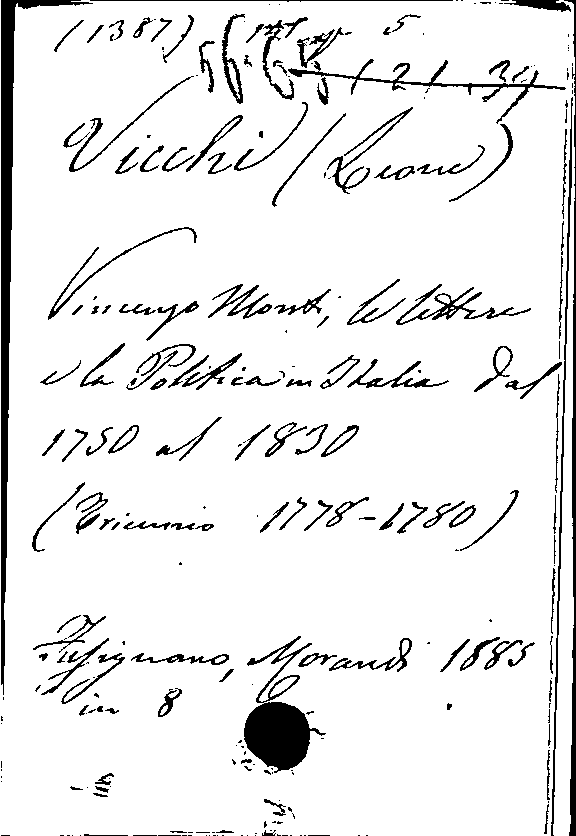 (1387) 5
56. G 58 121.39
Vicchi (Leone)
Vincenzo Monti, le lettere
e la Politica in Italia dal
1750 al 1830
(Triennio 1778-1780)
Fusignano, Morandi 1885
in 8